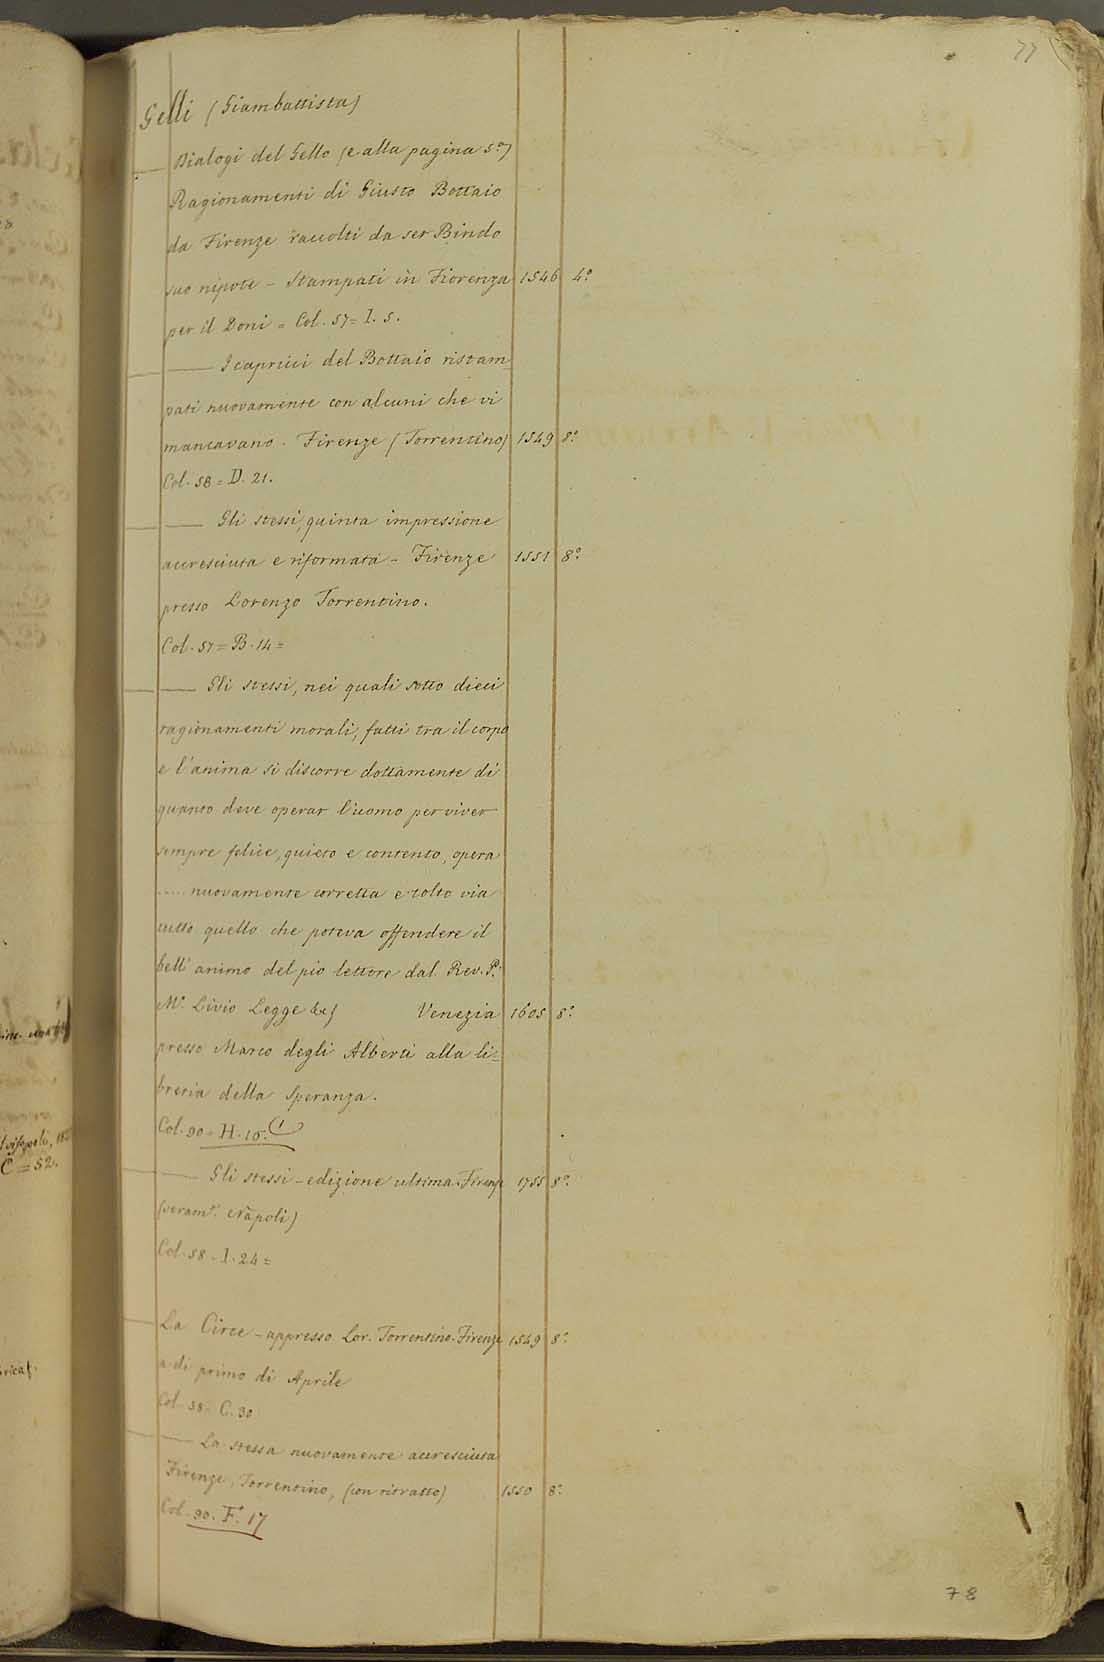 77
Gelli (Giambattista)
Dialogi del Gello (e alla pagina 5ª)
Ragionamenti di Giusto Bottaio
da Firenze raccolti da ser Bindo
suo nipote - Stampati in Fiorenza 1546 4.º
per il Doni = Col. 57 = I. 5.
I capricci del Bottaio ristam-
pati nuovamente con alcuni che vi
mancavano. Firenze (Torrentino) 1549 8.º
Col. 58 = D. 21.
Gli stessi, quinta impressione
accresciuta e riformata - Firenze 1551 8.º
presso Lorenzo Torrentino.
Col. 57 = B. 14 =
Gli stessi, nei quali sotto dieci
ragionamenti morali, fatti tra il corpo
e l'anima si discorre dottamente di
quanto deve operar l'uomo per viver
sempre felice, quieto e contento, opera
..... nuovamente corretta e tolto via
tutto quello che poteva offendere il
bell'animo del pio lettore dal Rev. P.
Mº. Livio Legge Venezia 1605 8.º
presso Marco degli Alberti alla li=
breria della Speranza.
Col. 90 = H. 16.
Gli stessi - edizione ultima. Firenze 1755 8.º
(veramᵉ. Napoli)
Col. 58 - I. 24 =
La Circe - appresso Lor. Torrentino. Firenze 1549 8.º
a di primo di Aprile
Col. 58 = C. 30
La stessa nuovamente accresciuta
Firenze, Torrentino, (con ritratto) 1550 8.º
Col. 90. F. 17
78
C = 52.